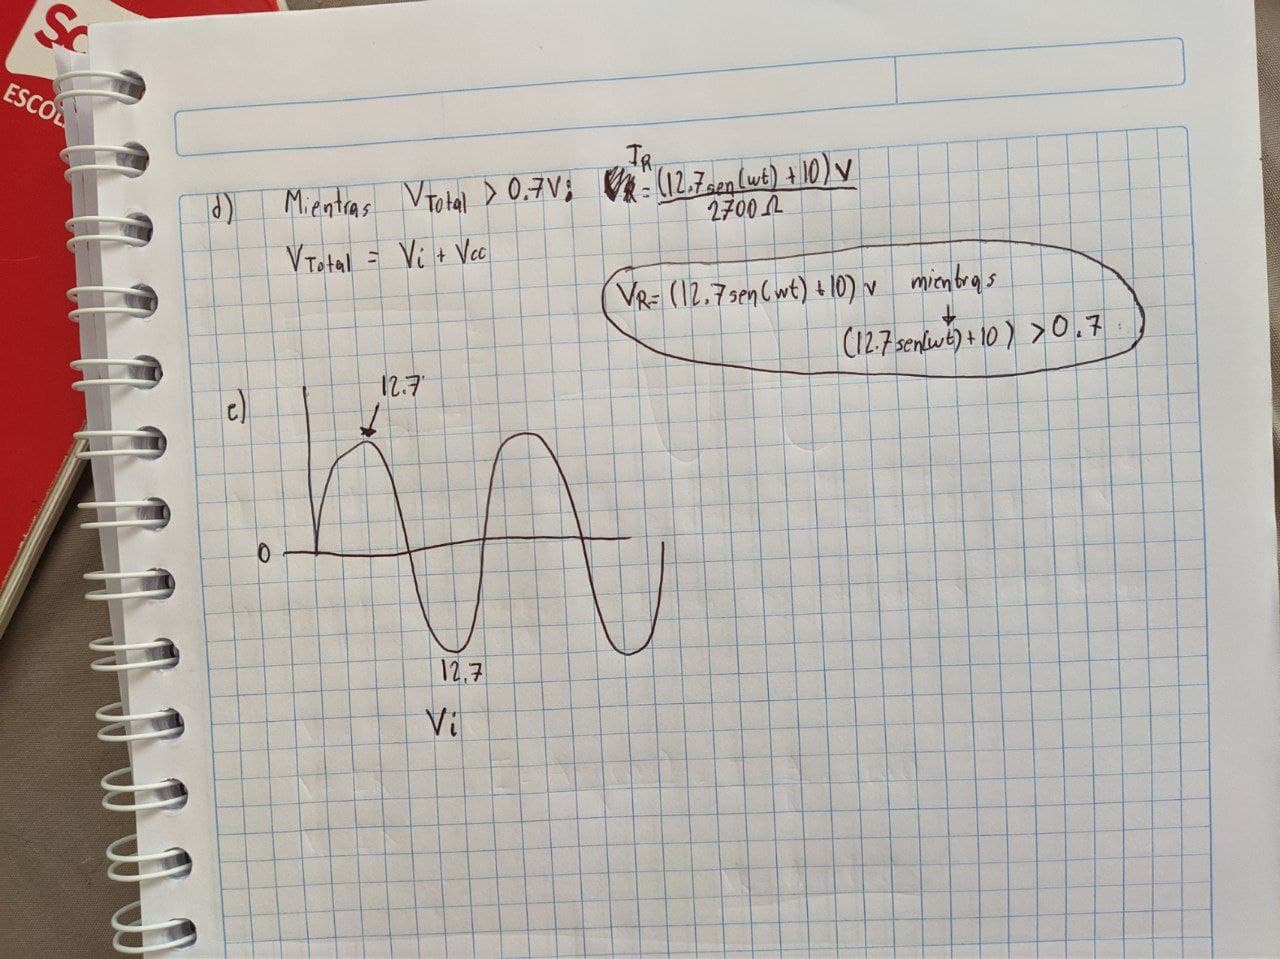 SC
ESCOL
d) Mientras VTotal > 0.7V; IR = (12.7sen(wt) + 10) V
2700 Ω
VTotal = Vi + Vcc
VR= (12.7sen(wt) + 10) v mientras
↓
(12.7sen(wt)+10) > 0.7
e)
12.7
0
12.7
Vi